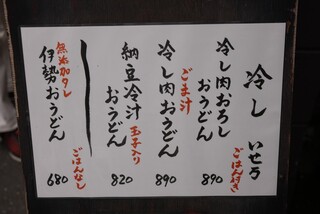 冷し いせろ
ごはん付き
冷し肉おろし
おうどん
890
ごま汁
冷し肉おうどん
890
納豆冷汁
玉子入り
おうどん
820
無添加タレ
伊勢おうどん
ごはんなし
680